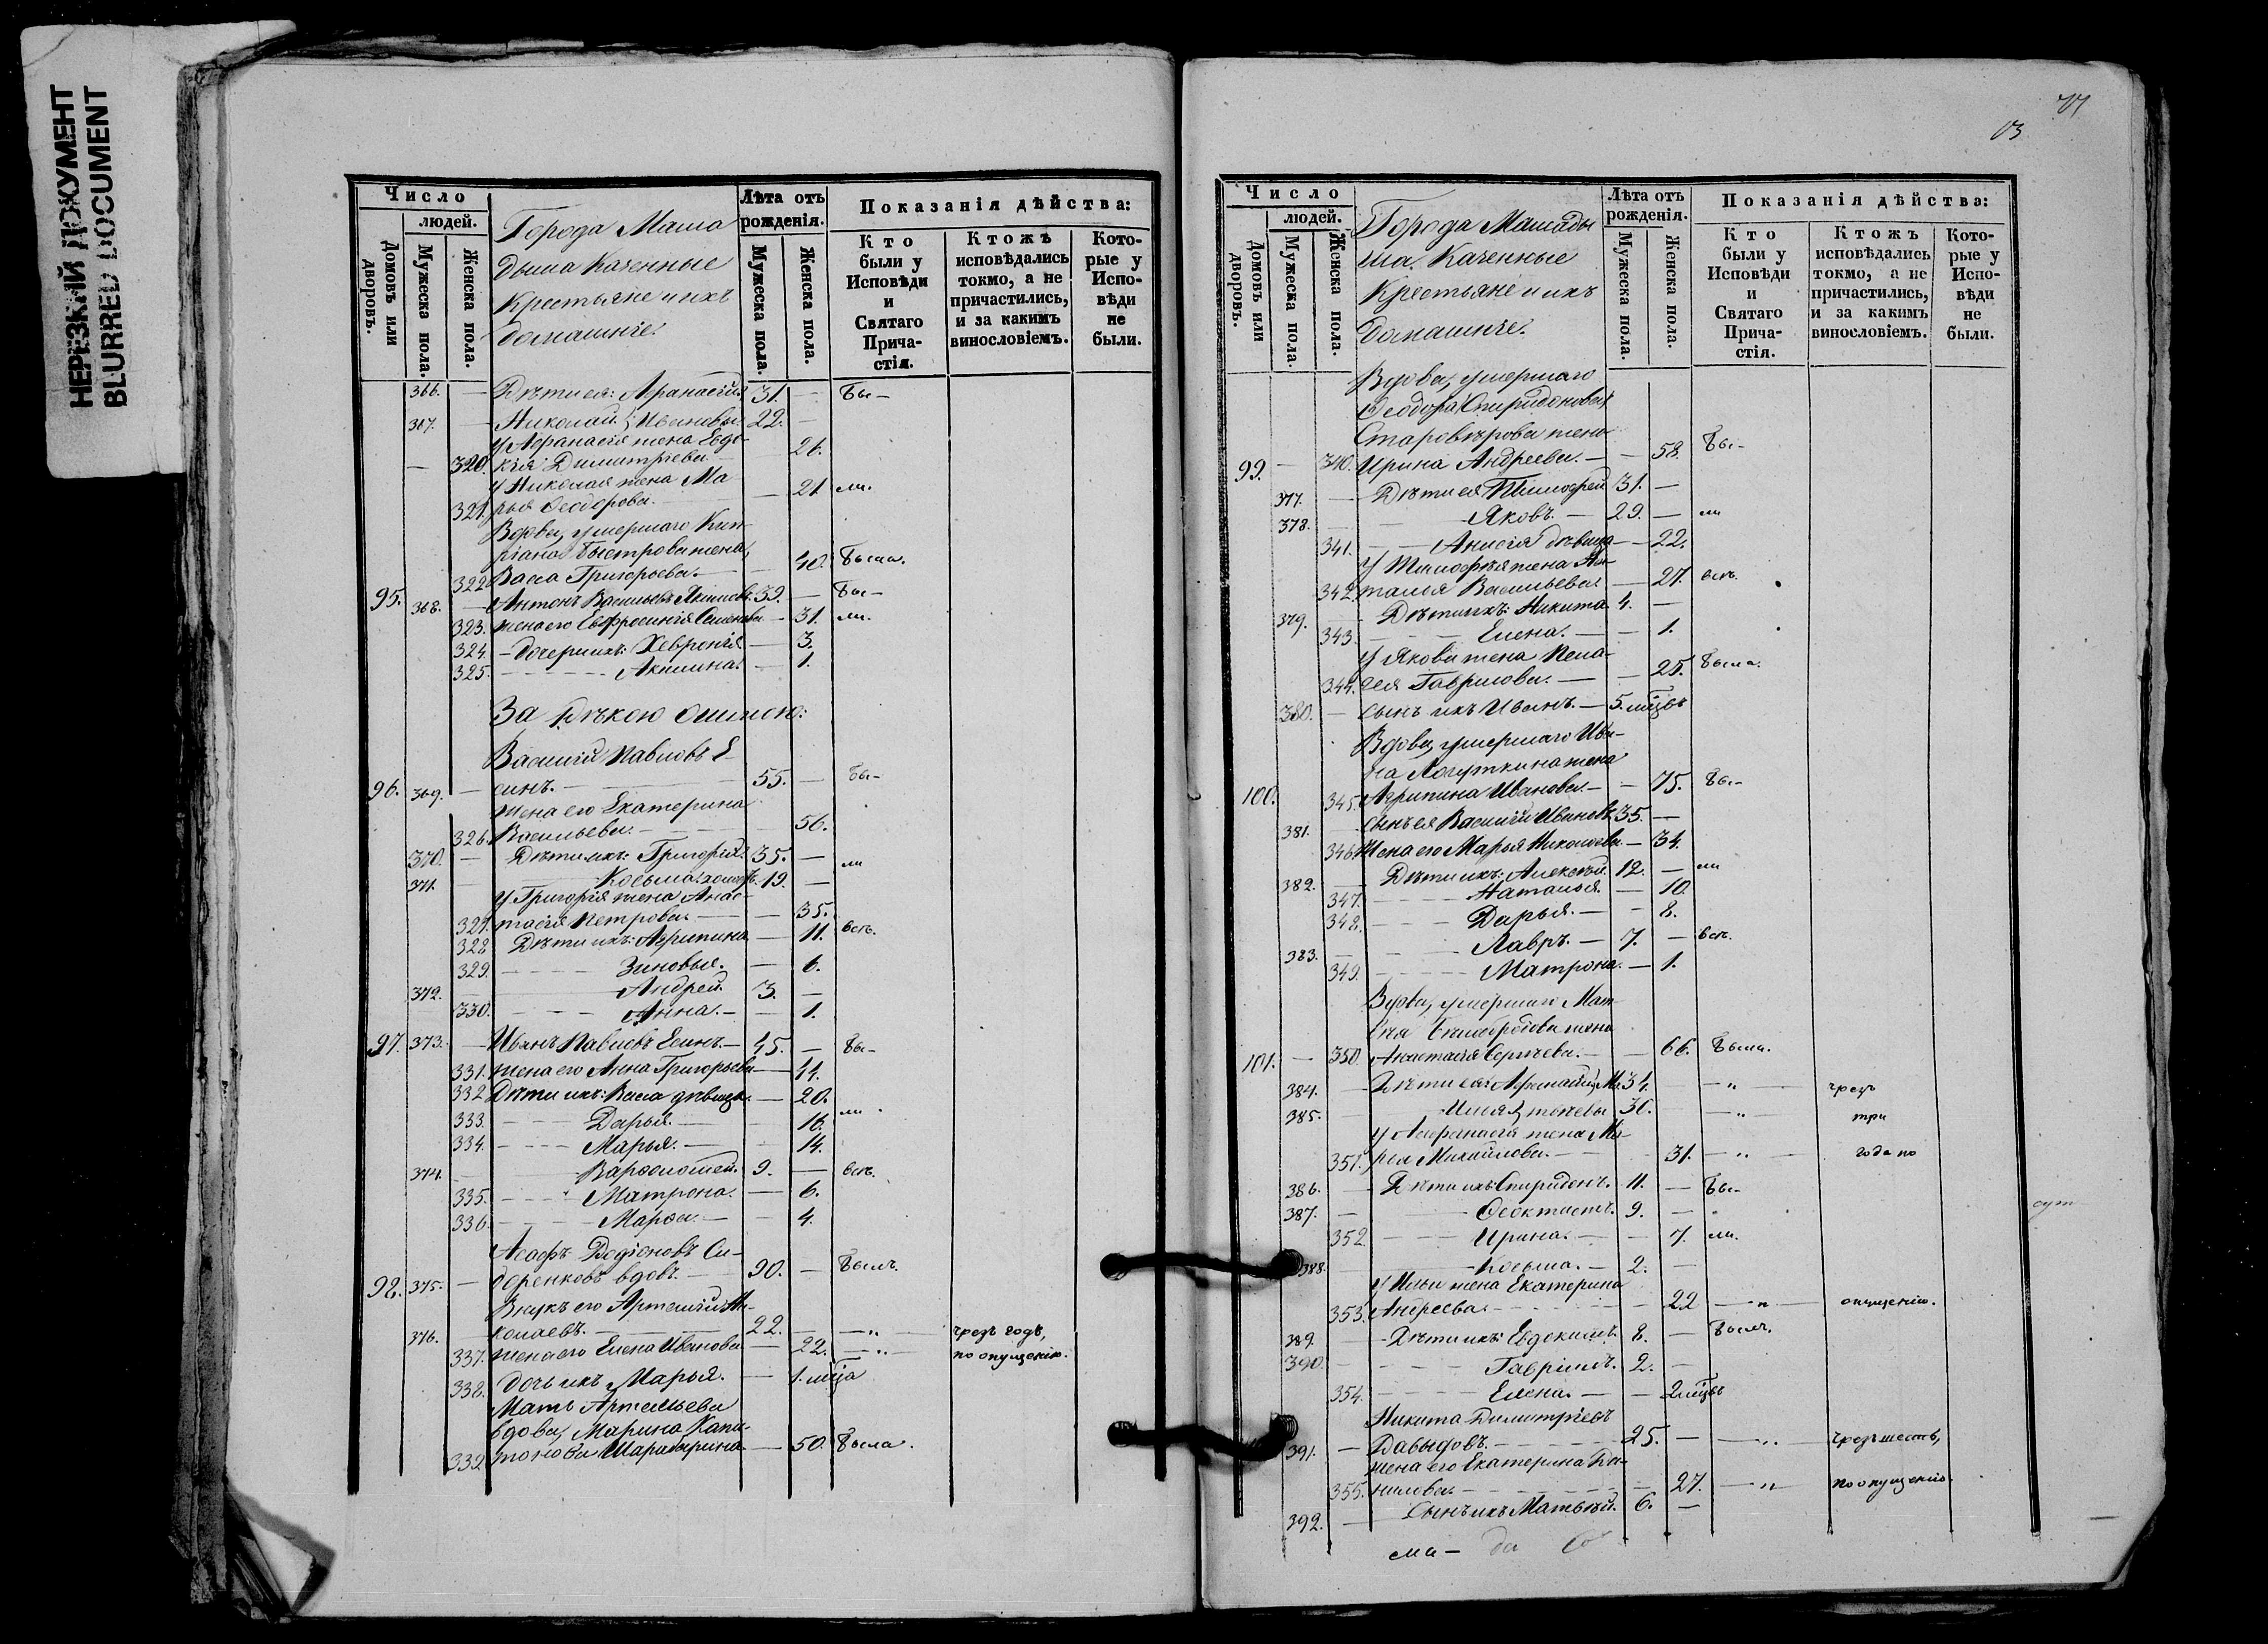 НЕРЕЗКИЙ ДОКУМЕНТ
BLURRED DOCUMENT
Число
людей.
Домовъ или дворовъ.
Мужеска пола.
Женска пола.
Города Мама
дыша Казенные
Крестьяне и ихъ
домашніе.
Лѣта отъ рожденія.
Мужеска пола.
Женска пола.
Показанія дѣйства:
Кто были у Исповѣди и Святаго Прича-стія.
Ктожъ исповѣдались токмо, а не причастились, и за какимъ винословіемъ.
Кото-рые у Испо-вѣди не были.
366. — Дѣти ея: Афанасій 31. — Бы-
367. — Николай Ивановы 22. —
У Афанасія жена Евдо-
— 320. кія Димитріева — 26.
У Николая жена Ма
321. рья Ѳеодорова — 21 ли.
Вдова, умершаго Кип-
ріана Быстрова жена,
322 Васса Григорьева. — 40. Была.
95. 368. — Антонъ Васильевъ Якимовъ 39. — Бы-
323. жена его Евфросинія Семенова — 31. ли.
324. - дочери ихъ: Хевронія — 3.
325. Акилина — 1.
За рѣкою Ошмою:
Василій Павловъ Е-
96. 369. — синъ. — 55. — Бы-
жена его Екатерина
326. Васильева. — 56.
370. — Дѣти ихъ: Григорій 35. — ли
371. — Косьма холостъ 19. —
У Григорія жена Анас-
327. тасія Петрова — 35.
328 Дѣти ихъ: Агрипина — 11. всѣ.
329. Зиновья. — 6.
372. Андрей 3. —
330. Анна. — 1.
97. 373. — Иванъ Павловъ Есинъ — 45. — Бы-
331. жена его Анна Григорьева — 44.
332 Дѣти ихъ: Васса дѣвица. — 20.
333. Дарья. — 16. ли.
334. Марья. — 14.
374. Варѳоломей. 9. — всѣ.
335. Матрона. — 6.
336. Марѳа. — 4.
Асафъ Родіоновъ Си-
98. 375. — доренковъ вдовъ. 90. — Былъ.
Внукъ его Артемій Ни-
376. колаевъ. 22. — „ — чрезъ годъ,
337. жена его Елена Иванова — 22. — „ — по опущенію.
338. дочь ихъ Марья. — 1. мѣца
Мать Артемьева
вдова, Марина Капи-
339. тонова Шарабарина — 50. Была.
71
Число
людей.
Домовъ или дворовъ.
Мужеска пола.
Женска пола.
Города Мамады
ша. Казенные
Крестьяне и ихъ
домашніе.
Лѣта отъ рожденія.
Мужеска пола.
Женска пола.
Показанія дѣйства:
Кто были у Исповѣди и Святаго Прича-стія.
Ктожъ исповѣдались токмо, а не причастились, и за какимъ винословіемъ.
Кото-рые у Испо-вѣди не были.
Вдова, умершаго
Ѳеодора Спиридонова
Старовѣрова жена
99. — 340. Ирина Андреева. — 58. Бы-
377. Дѣти ея Тимоѳей 31. —
378. Яковъ. — 29. — ли
341. Анисія дѣвица — 22.
У Тимоѳея жена На-
342. талья Васильева — 27. всѣ.
379. Дѣти ихъ: Никита 4. —
343. Елена. — 1.
У Якова жена Пела-
344. гея Гаврилова. — 25. Была.
380. — сынъ ихъ Иванъ. — 5. мѣцвъ
Вдова, умершаго Ива-
на Логуткина жена
100. 345. Агрипина Иванова — 75. Бы-
381. — сынъ ея Василій Ивановъ 35. —
346. Жена его Марья Николаева — 34.
382. — Дѣти ихъ: Алексѣй 12. — ли
347. Наталья — 10.
348. Дарья. — 8.
383. Лавръ. — 7. — всѣ.
349. Матрона. — 1.
Вдова, умершаго Мат
вѣя жена
101. — 350. Анастасія Сергѣева. — 66. Была.
384. — Дѣти ея: Афанасій 34. — „ — чрезъ
385. Илья 30. — „ — три
У Афанасія жена Ма-
351. рья Михайлова. — 31. — „ — года по
386. Дѣти ихъ Спиридонъ. 11. — Бы-
387. — Ѳеоктистъ. 9. —
352. Ирина. — 7. ли.
388. Косьма. — 2. —
У Ильи жена Екатерина
353. Андреева — 22 — „ — опущенію.
389. — Дѣти ихъ: Евдокимъ 8. — Былъ.
390. Гавріилъ. 2. —
354. Елена. — 2 мѣцвъ
Никита Димитріевъ
391. — Давыдовъ. 25. — „ — чрезъ шесть,
жена его Екатерина Да-
355. нилова — 27. — „ — по опущенію.
392. — Сынъ ихъ Матвѣй. 6. —